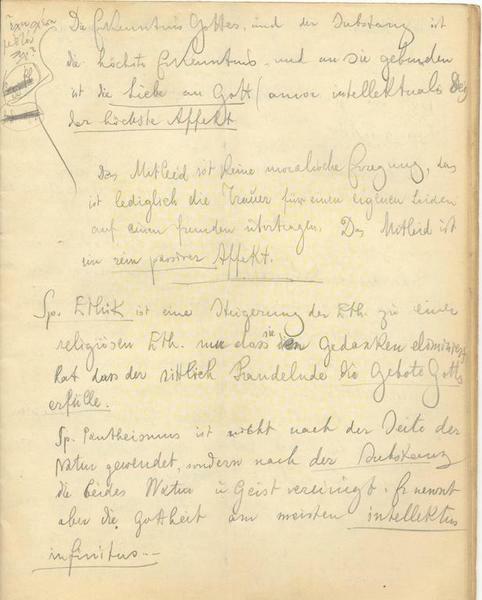 Die Erkenntnis Gottes, und der Substanz ist
die höchste Erkenntnis, und an sie gebunden
ist die Liebe an Gott (amor intellektualis Dei)
der höchste Affekt
Das Mitleid ist keine moralische Erregung, das
ist lediglich die Trauer für einen eigenen Leiden
auf einen fremden übertragen. Das Mitleid ist
ein rein passiver Affekt.
Sp. Ethik ist eine Steigerung der Eth. zu einer
religiösen Eth. nur dass sie den Gedanken eliminiert
hat dass der sittlich Handelnde die Gebote Gotts
erfülle.
Sp. Pantheismus ist nicht nach der Seite der
Natur gewendet, sondern nach der Substanz
die beides Natur u Geist vereinigt. Er nennt
aber die Gottheit am meisten intellektus
infinitus...